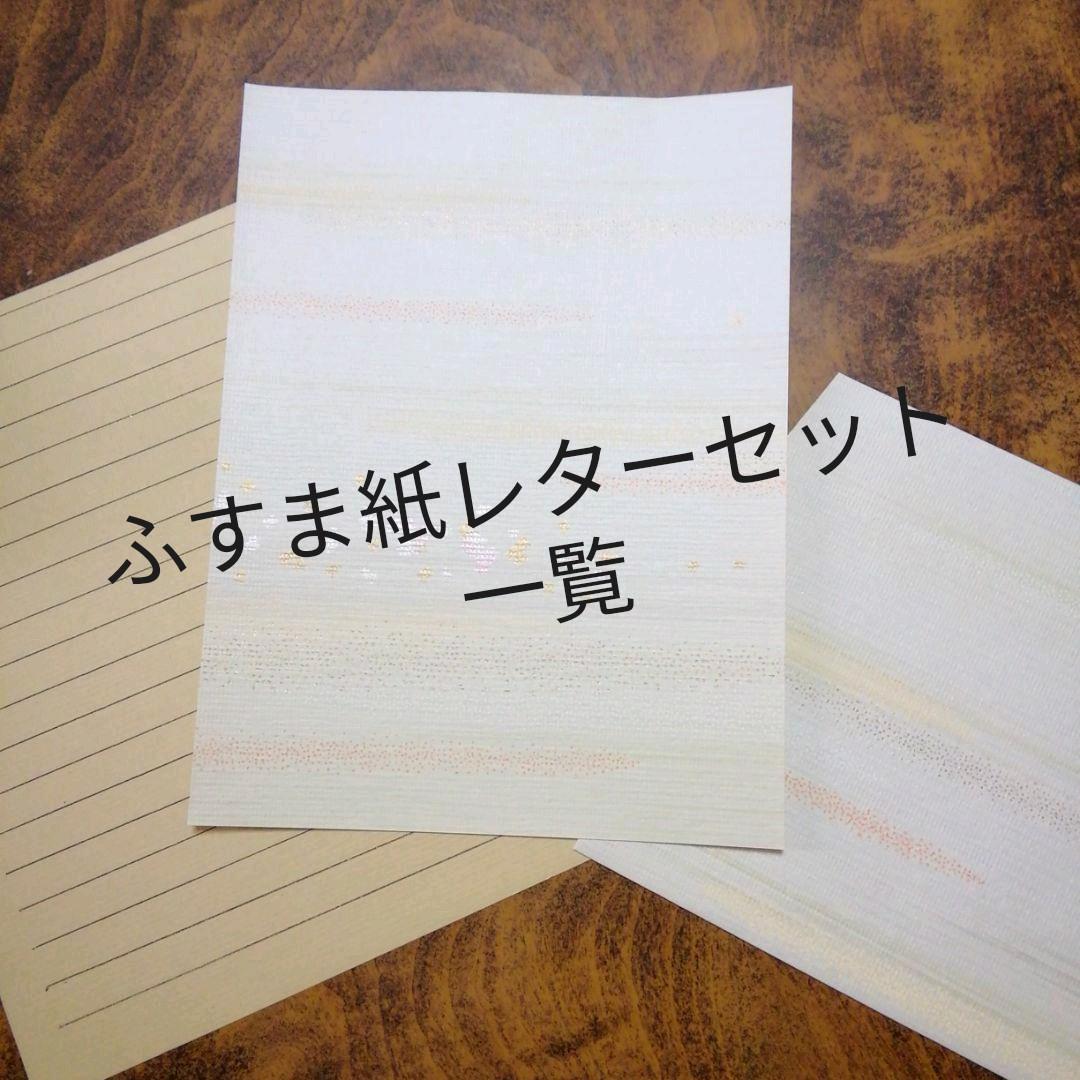 ふすま紙レターセット
一覧